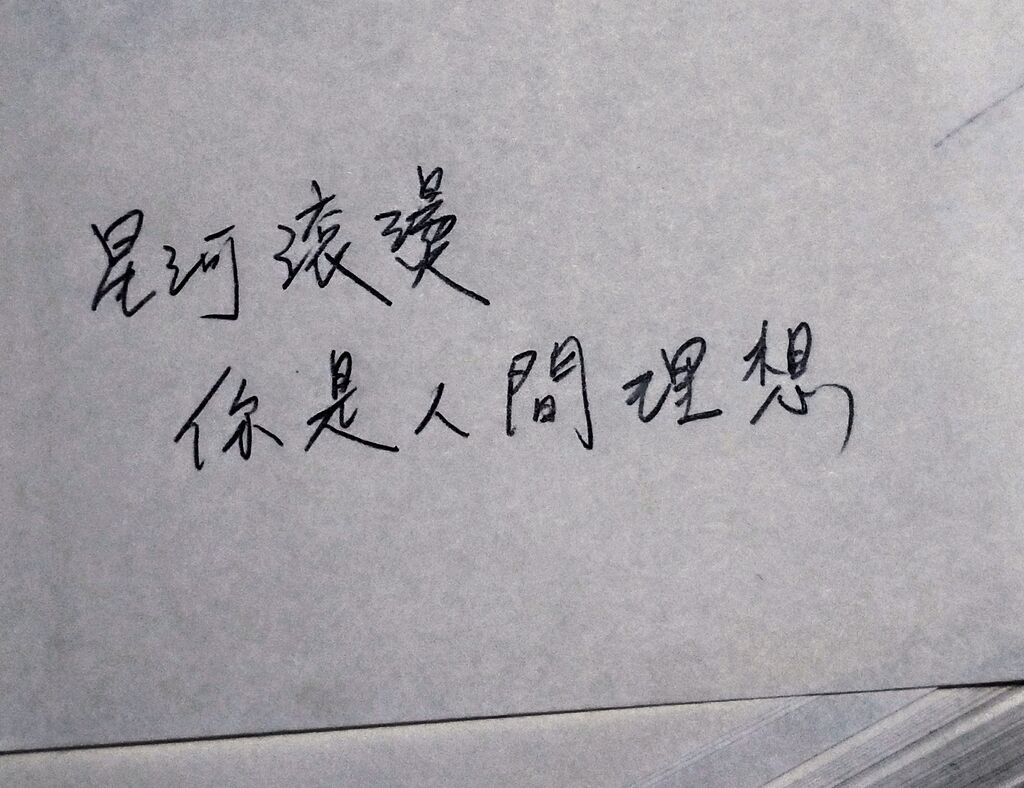 星河滾燙
你是人間理想